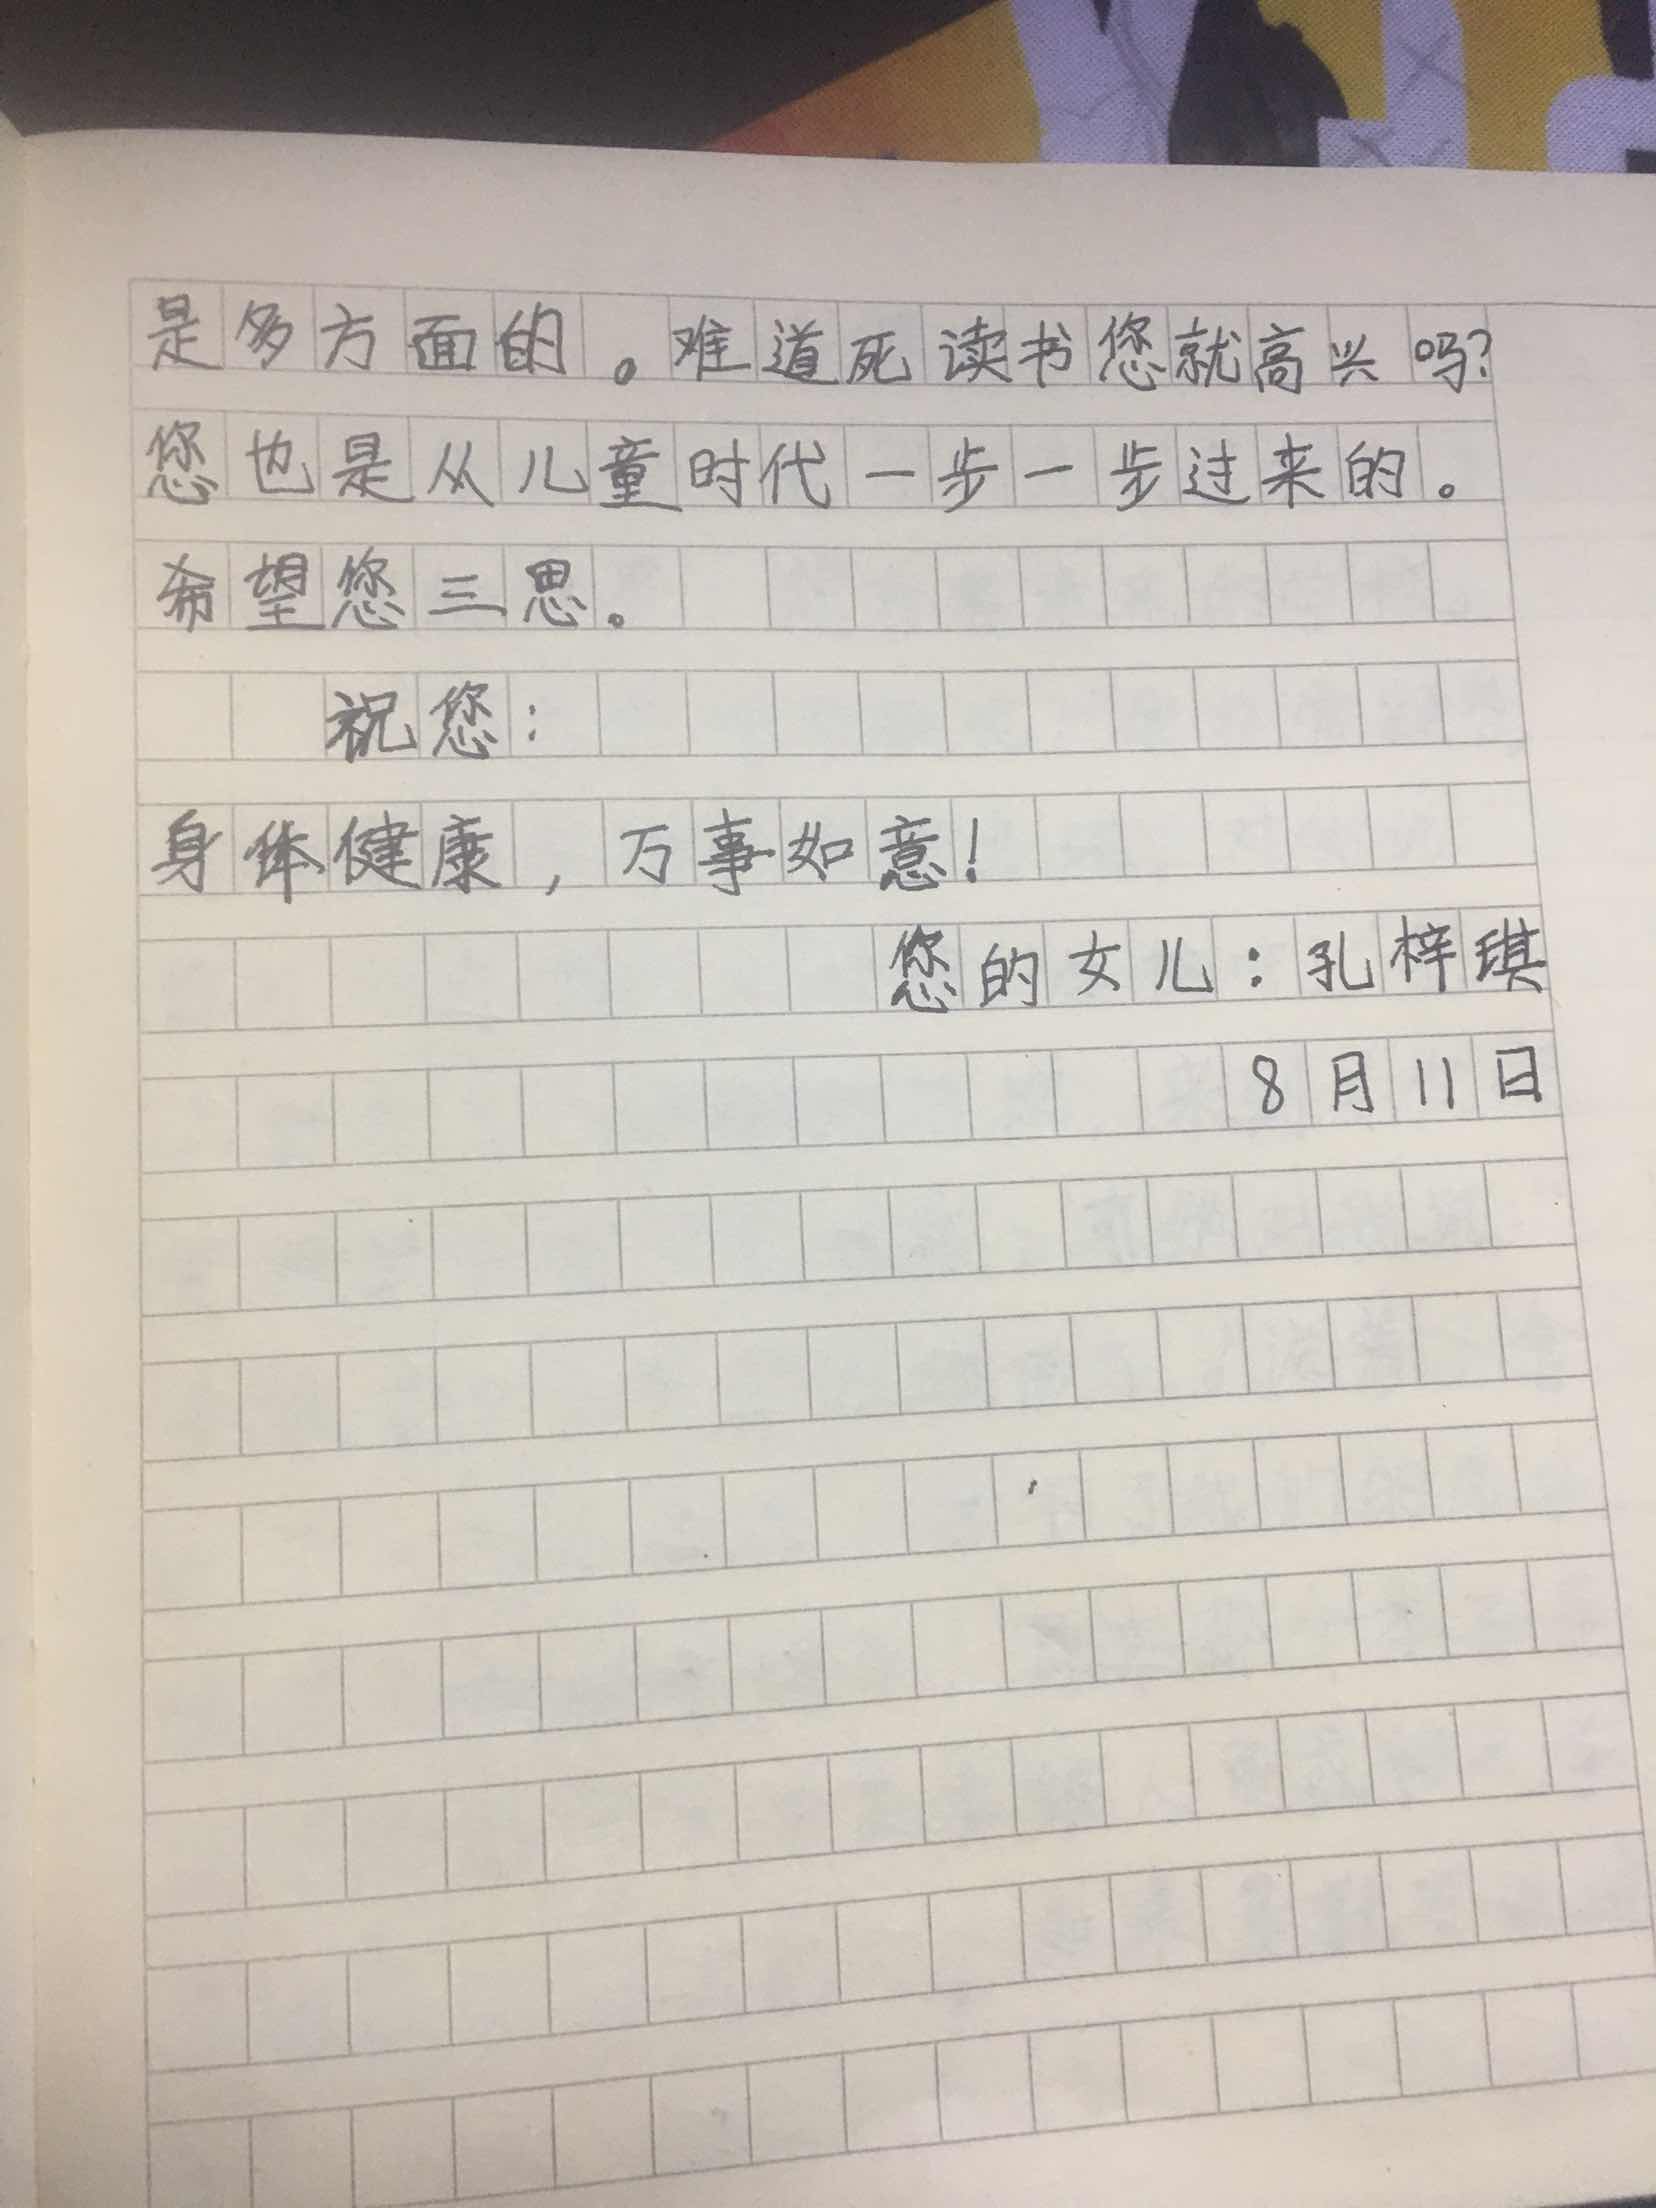 是多方面的。难道死读书您就高兴吗?
您也是从儿童时代一步一步过来的。
希望您三思。
祝您:
身体健康,万事如意!
您的女儿:孔梓琪
8月11日